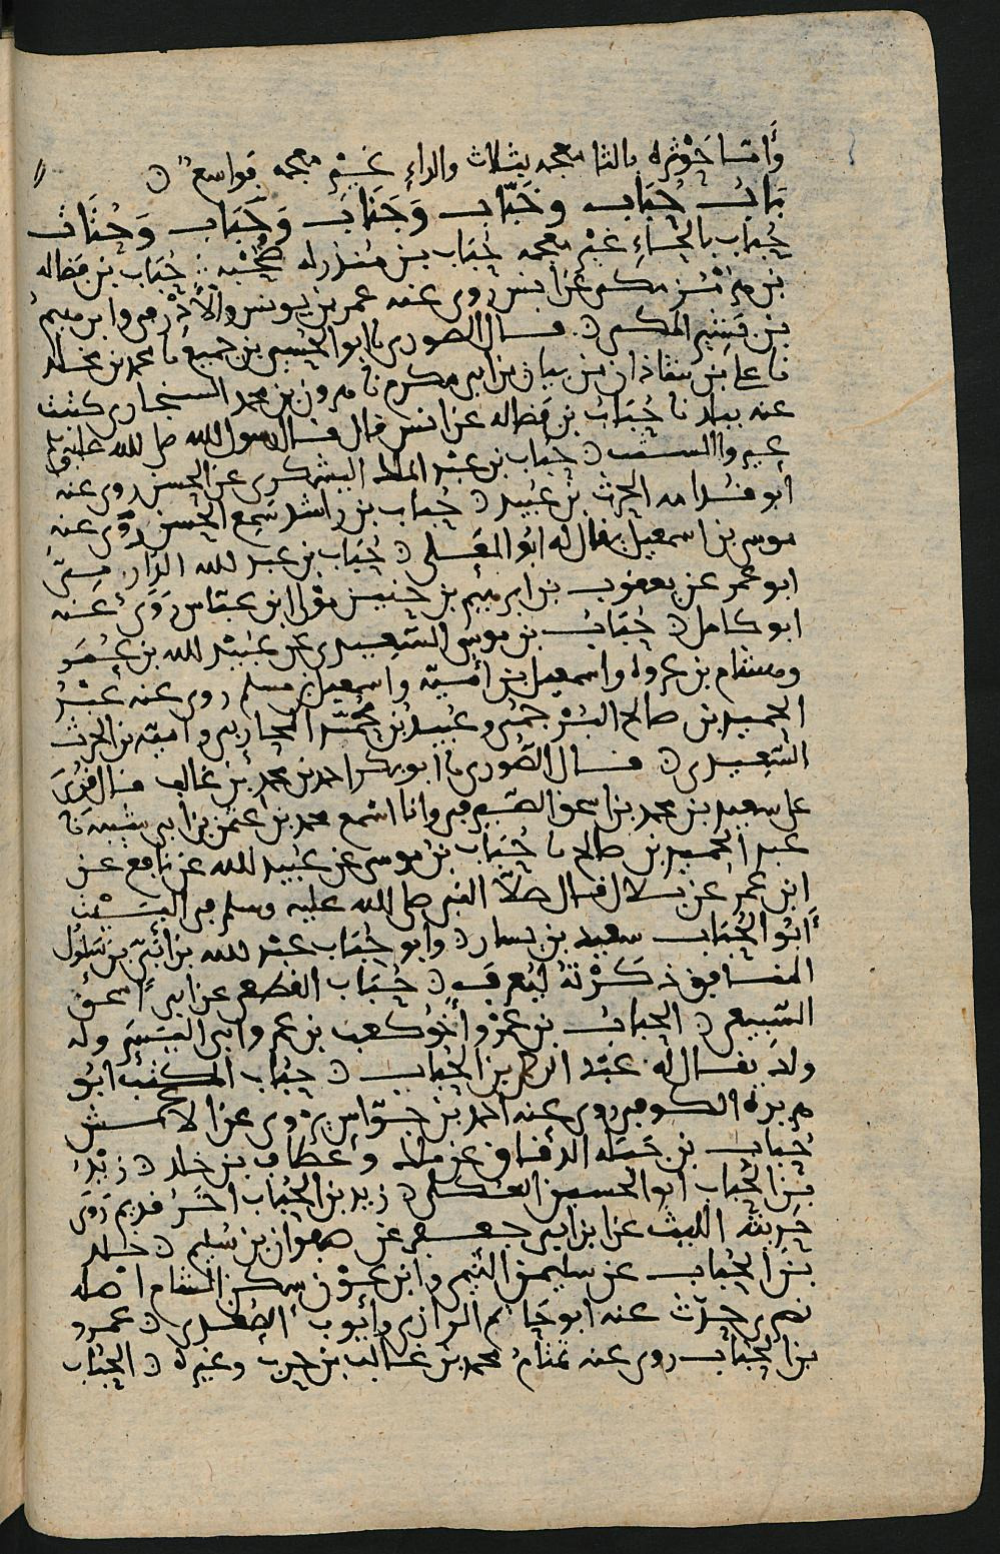 وأما حوثره بالثا معجمه بثلاث والراء غير معجمه فواسع
باب حُبَاب وخَبّاب وجَنَاب وجَبَاب وحُتَات
حُباب بالحاء غير معجمه حُبَاب بن منذر له صحبه حُبَاب بن فضاله
بن هرمز مكي عن انس روى عنه عمر بن يونس
بن قتيبه المكي قال الصوري نا ابو الحسين بن جميع نا محمد بن مخلد
نا علي بن بيان بن ابي مكرم نا هرون بن محمد السنجاري كتبت
عنه ببلد نا حُبَاب بن فضاله عن انس قال قال رسول الله صلى الله عليه
حباب بن عبد الملك اليشكري عن الحسن روى عنه
ابو قدامه الحرث بن عبيد حُباب بن راشد سمع الحسن روى عنه
موسى بن اسمعيل يقال له ابو حُبَاب بن عبد الله الدار
ابو عمر عن يعقوب بن ابرهيم بن حنين مولى ابن عباس روى عنه
ابو كامل حُبَاب بن موسى السعيدي عن عبيد الله بن عمر
وهشام بن عروه واسمعيل بن أميه واسمعيل بن مسلم روى عنه عبد
الحميد بن صالح البرجمي وعبيد بن محمد المحاربي واميه بن الحرث
السعيدي قال الصوري نا ابو بكر احمد بن محمد بن غالب قال قرئ
على سعيد بن محمد بن اسحق الصيرفي وانا اسمع محمد بن عثمن بن ابي شيبه نا
عبد الحميد بن صالح نا حُبَاب بن موسى عن عبيد الله عن نافع عن
ابن عمر عن بلال قال صلى النبي صلى الله عليه وسلم في البيت
أبو الحُبَاب سعيد بن يسار وابو حُبَاب عبد الله بن أُبَيّ بن سلول
المنافق ذكرته ليعرف حُبَاب القطعي عن ابي اسحق
السبيعي الحباب بن عمرو أخو كعب بن عمرو ابي اليسر وله
ولد يقال له عبد الرحمن بن الحباب حباب المكتب ابو
هريره الكوفي روى عنه احمد بن جواس يروي عن الاعمش
حُباب بن جبله الدقاق عن ملك وعطاف بن خلد زيد
بن الحُباب ابو الحسين العكلي زيد بن الحُباب اخر قديم روى
حديثه الليث عن ابن ابي جعفر عن صفوان بن سليم خلد
بن الحُباب عن سليمن التيمي وابن عون سكن الشام اصله
بصري حدث عنه ابو حاتم الرازي وأيوب عمرو
بن الحباب روى عنه تمتام محمد بن غالب بن حرب وغيره الحُبَاب